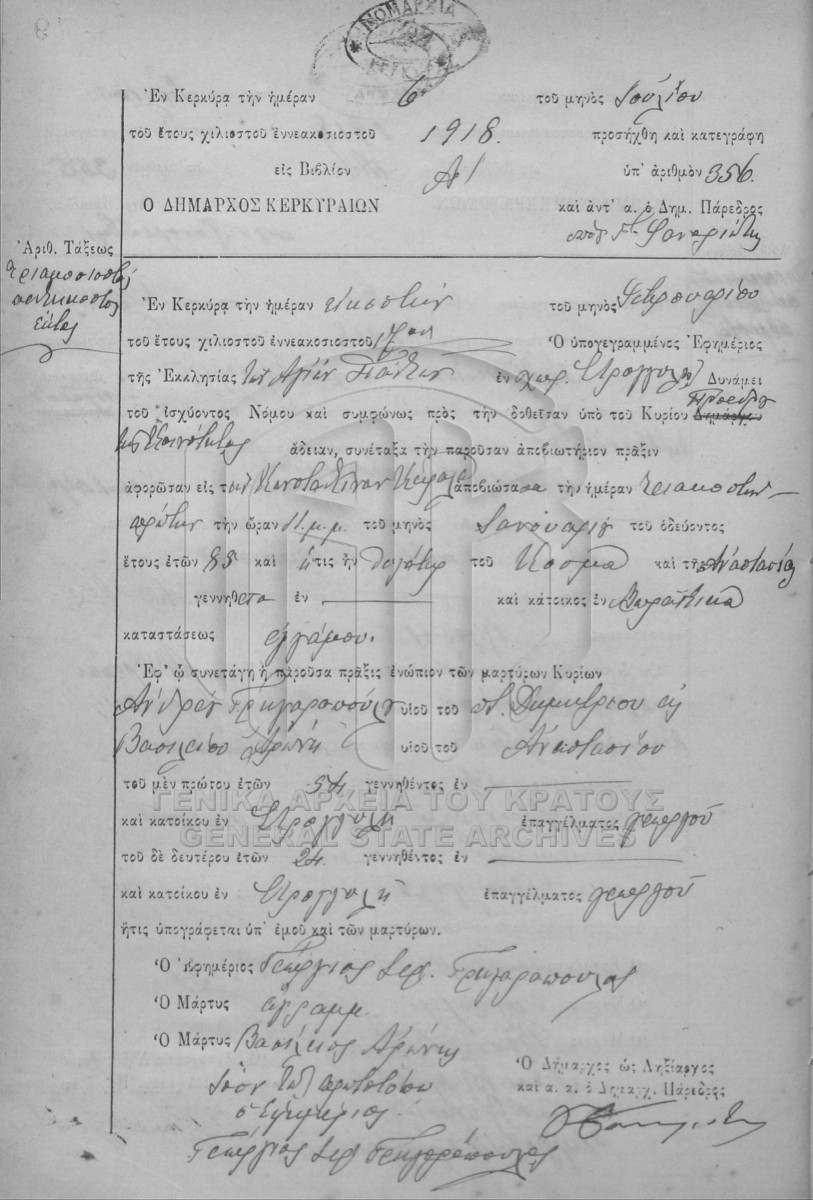 ΝΟΜΑΡΧΙΑ
Ἐν Κερκύρᾳ τὴν ἡμέραν 6 τοῦ μηνὸς Ἰουλίου
τοῦ ἔτους χιλιοστοῦ ἐννεακοσιοστοῦ 1918. προσήχθη καὶ κατεγράφη
εἰς Βιβλίον Α ὑπ' ἀριθμὸν 356.
Ο ΔΗΜΑΡΧΟΣ ΚΕΡΚΥΡΑΙΩΝ καὶ ἀντ' α. ὁ Δημ. Πάρεδρος
Ἀριθ. Τάξεως
Ἐν Κερκύρᾳ τὴν ἡμέραν εἰκοστὴν τοῦ μηνὸς Φεβρουαρίου
τοῦ ἔτους χιλιοστοῦ ἐννεακοσιοστοῦ Ὁ ὑπογεγραμμένος Ἐφημέριος
τῆς Ἐκκλησίας των Αγίων Πάντων ἐν χωρ. Στρογγυλῇ Δυνάμει
τοῦ ἰσχύοντος Νόμου καὶ συμφώνως πρὸς τὴν δοθεῖσαν ὑπὸ τοῦ Κυρίου Δημάρχου Προέδρου
της Κοινότητος ἄδειαν, συνέταξα τὴν παροῦσαν ἀποβιωτήριον πρᾶξιν
ἀφορῶσαν εἰς ἀποβιώσασα τὴν ἡμέραν τριακοστὴν
πρώτην τὴν ὥραν 11 μ.μ. τοῦ μηνὸς Ἰανουαρίου τοῦ ὁδεύοντος
ἔτους ἐτῶν 85 καὶ ἥτις ἦν θυγάτηρ τοῦ Κοσμᾶ καὶ τῆς Ἀναστασίας
γεννηθεῖσα ἐν καὶ κάτοικος ἐν
καταστάσεως ἐγγάμου.
Ἐφ' ᾧ συνετάγη ἡ παροῦσα πρᾶξις ἐνώπιον τῶν μαρτύρων Κυρίων
Ἀνδρέου Γρηγοροπούλου υἱοῦ τοῦ π. Δημητρίου καὶ
Βασιλείου Ἀρώνη υἱοῦ τοῦ Ἀναστασίου
τοῦ μὲν πρώτου ἐτῶν 54 γεννηθέντος ἐν
ΓΕΝΙΚΑ ΑΡΧΕΙΑ ΤΟΥ ΚΡΑΤΟΥΣ
καὶ κατοίκου ἐν Στρογγυλῇ ἐπαγγέλματος γεωργοῦ
GENERAL STATE ARCHIVES
τοῦ δὲ δευτέρου ἐτῶν 24 γεννηθέντος ἐν
καὶ κατοίκου ἐν Στρογγυλῇ ἐπαγγέλματος γεωργοῦ
ἥτις ὑπογράφεται ὑπ' ἐμοῦ καὶ τῶν μαρτύρων.
Ὁ Ἐφημέριος Γεώργιος Ἱερ. Γρηγορόπουλος
Ὁ Μάρτυς ἀγράμμ.
Ὁ Μάρτυς Βασίλειος Ἀρώνης
Ὁ Δήμαρχος ὡς Ληξίαρχος
Ἴσον τῷ πρωτοτύπῳ
καὶ α. α. ὁ Δημαρχ. Πάρεδρος
ὁ Ἐφημέριος
Γεώργιος Ἱερ. Γρηγορόπουλος